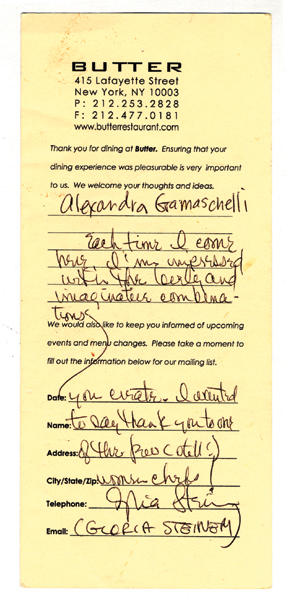 BUTTER
415 Lafayette Street
New York, NY 10003
P: 212.253.2828
F: 212.477.0181
www.butterrestaurant.com
Thank you for dining at Butter. Ensuring that your
dining experience was pleasurable is very important
to us. We welcome your thoughts and ideas.
Alexandra Gamaschelli
Each time I come
here, I'm impressed
with the and
imaginative combina-
tions
We would also like to keep you informed of upcoming
events and menu changes. Please take a moment to
fill out the information below for our mailing list.
Date: you create. I wanted
Name: to say thank you to one
Address: of the few (still!)
City/State/Zip: women chefs
Telephone: Gloria Steinem
Email: (GLORIA STEINEM)